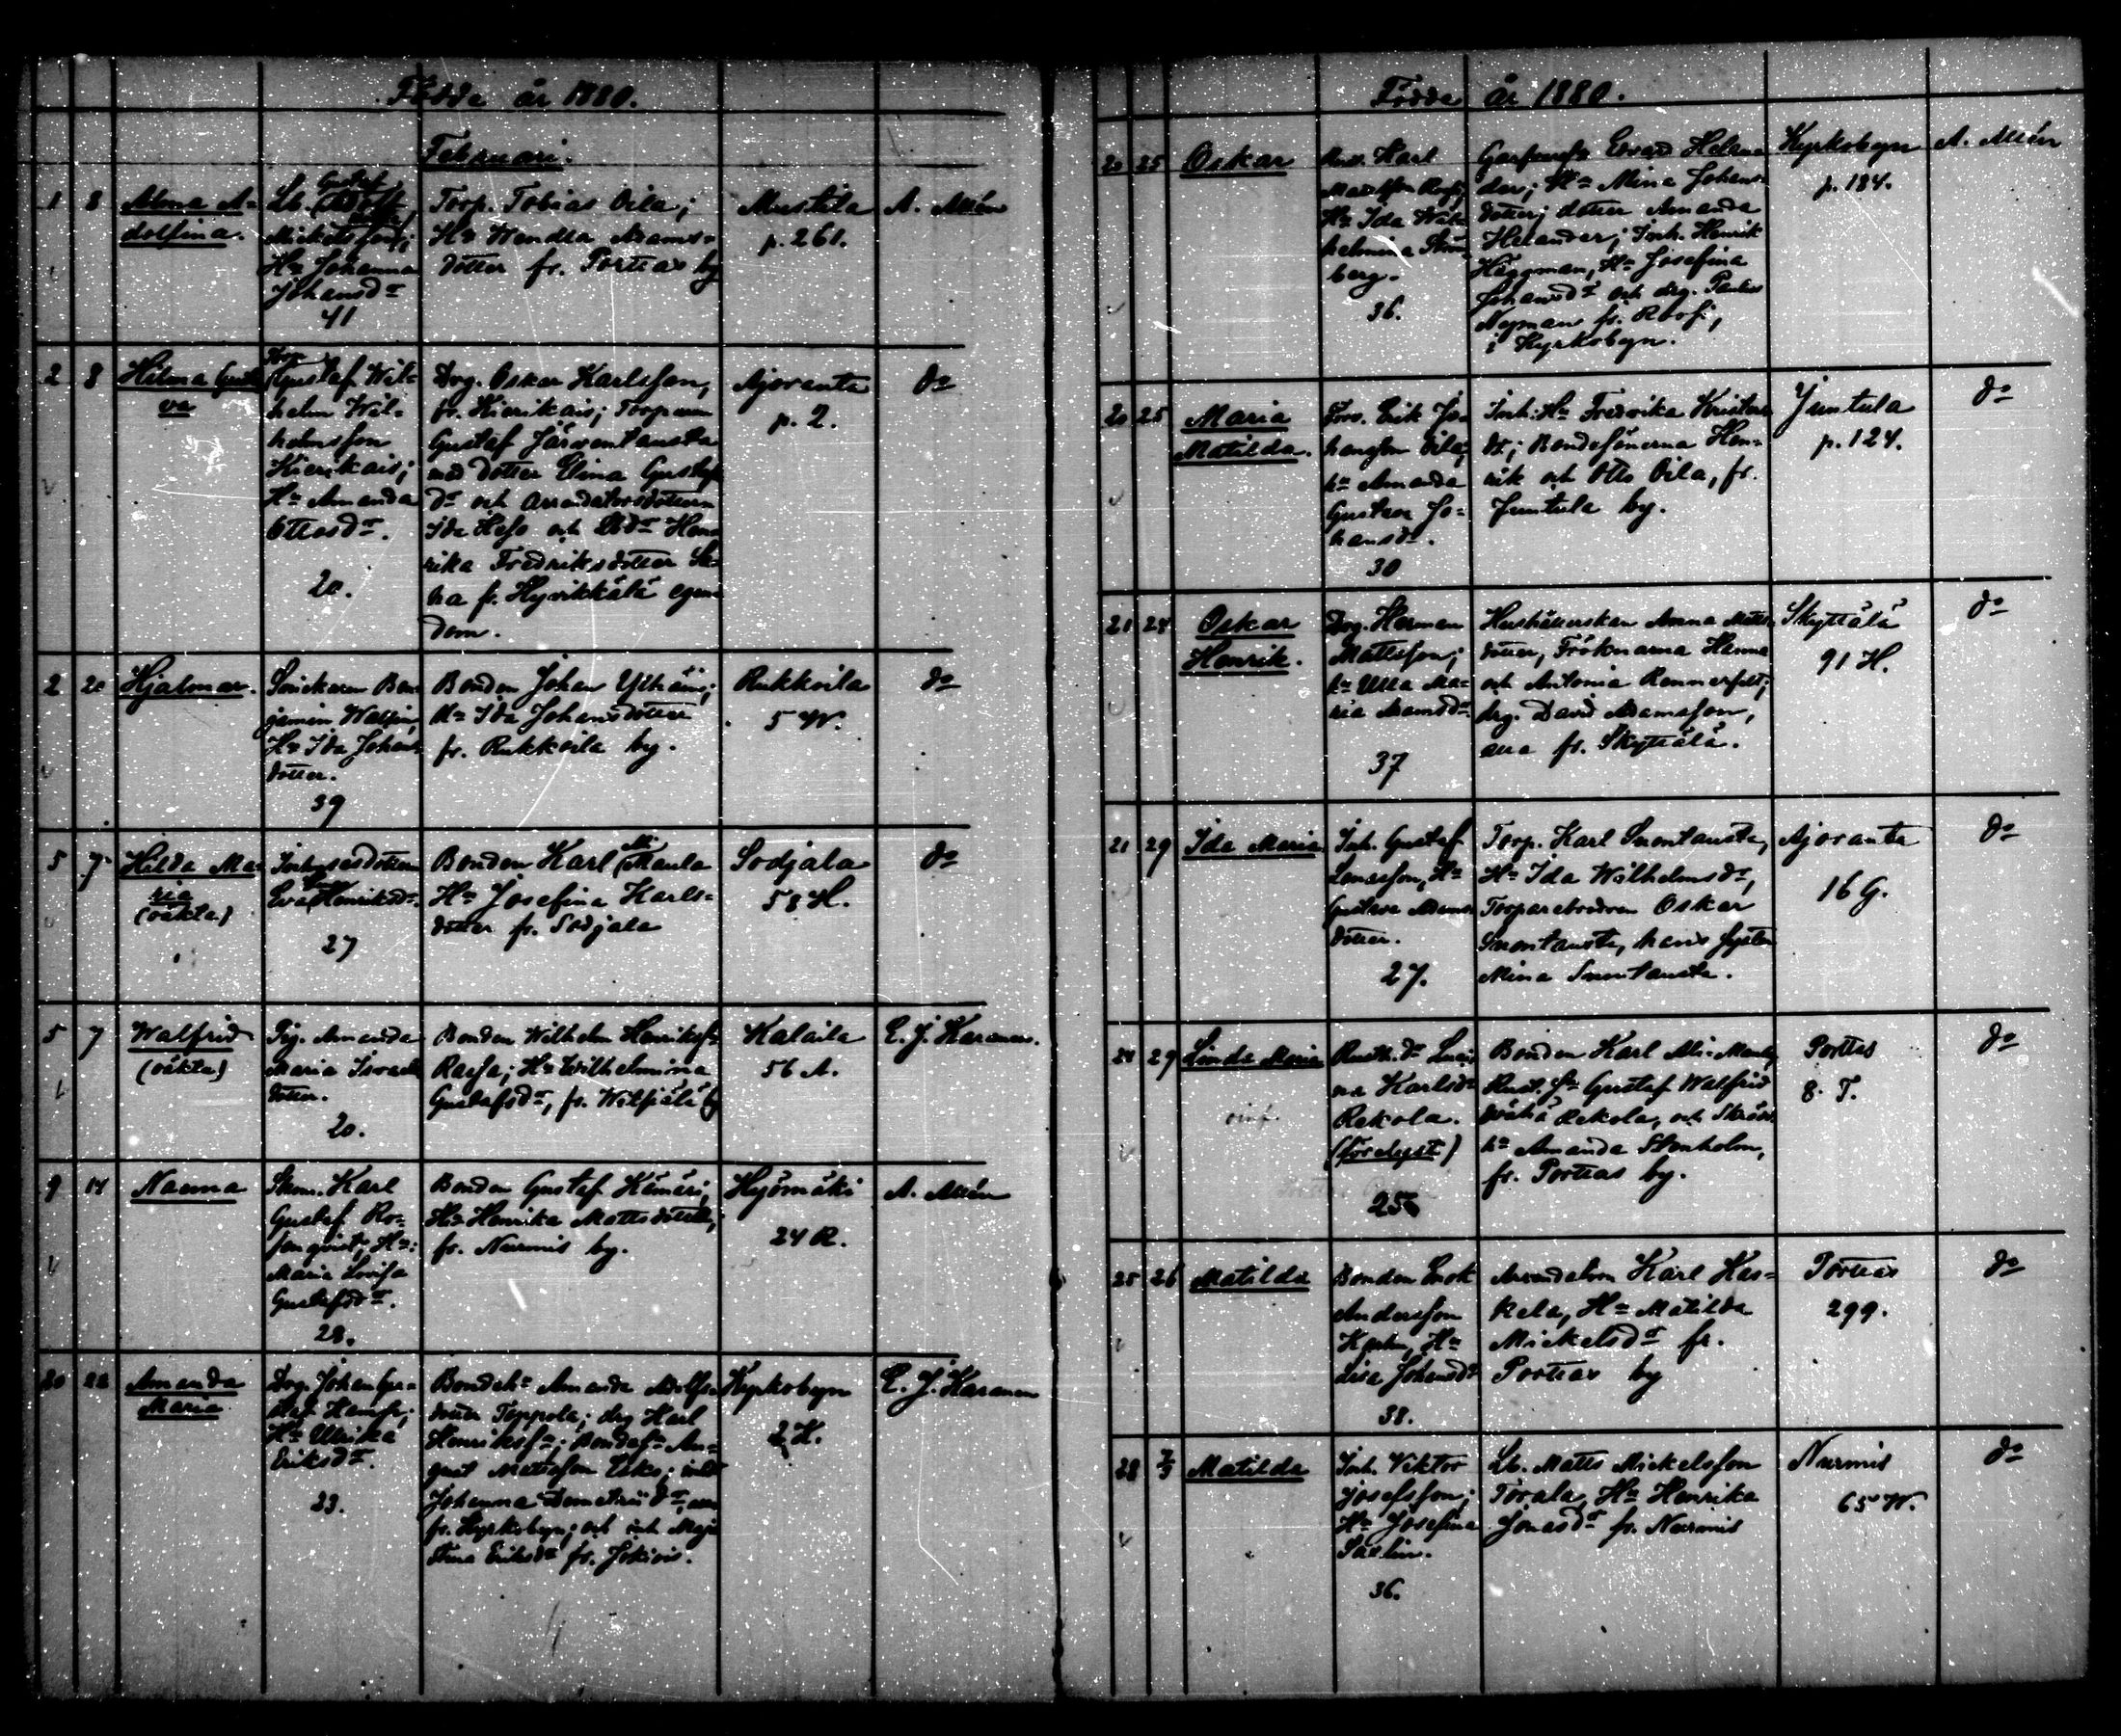 Födde år 1880.
Februari.
1 8 Alma A=
dolfina.
Lb. Gustaf Adolf
Mickelsson;
Hu Johanna
Johansdr
41
Torp. Tobias Oila;
Hu Wendla Adams-
dotter fr. Porttas by
Mustila
p. 261.
A. Allén
2 8 Hilma Gusta
va
Torp Gustaf Wil=
helm Wil=
helmsson
Kierikais;
Hu Amanda
Ottosdr.
20.
Drg. Oskar Karlsson,
fr. Kierikais; Torparen
Gustaf Järventausta
med dotter Elina Gustafs
dr och Arrendatorsdottern
Ida Heso och Hen
rika Fredriksdotter
fr. Hyvikkälä egen
dom.
Ajoranta
p. 2.
do
2 20 Hjalmar.
Snickaren Ben
jamin Walfin,
Hu Ida Johans
dotter.
39
Bonden Johan
Hu Ida Johansdotter
fr. Rukkoila by.
Rukkoila
5 W.
do
5 7 Hilda Ma
ria
(oäkta)
Inhysesdottern
Eva Henriksdr.
27
Bonden Karl Ali Maula
Hu Josefina Karls=
dotter fr. Sodjala
Sodjala
58 H.
do
5 7 Walfrid
(oäkta)
Pig. Amanda
Maria Israels
dotter.
20.
Bonden Wilhelm Henriksn
Raisa; Hu Wilhelmina
Gustafsdr, fr. Wilpiälä by
Kalaila
56 A.
E. J. Karanen.
9 14 Naema
Skom. Karl
Gustaf Ro=
senqvist; Hu:
Maria Lovisa
Gustafsdr.
28.
Bonden Gustaf Kämäri,
Hu Henrika Mattsdotter,
fr. Nurmis by.
Hyömäki
24 R.
A. Allén
20 22 Amanda
Maria
Drg. Johan Gu=
staf
Hu Ulrika
Eriksdr.
33.
Bondehu Amanda Adolfs=
dotter Teppola; drg Karl
Henriksn; Bondesn Au=
gust Mattsson
Johanna
fr. Kyrkobyn; och inh Maja
Stina Eriksdr fr. Jokiois.
Kyrkobyn
2 H.
E. J. Karanen
Födde år 1880.
20 25 Oskar
Rust. Karl
Mattsson
Hu Ida Wil
helmina
berg.
36.
Garfvaren Edvard Helan
der; Hu Mina Johans=
dotter; dotter Amanda
Helander; Inh. Henrik
Häggman, Hu Josefina
Johansdr och drg.
Nyman fr.
i Kyrkobyn.
Kyrkobyn
p. 184.
A. Allén
20 25 Maria
Matilda.
Torp. Erik Jo=
hansson Oila;
hu Amanda
Gustava Jo=
hansdr.
30
Inh: Hu Fredrika Kristers
dr; Bondesönerna Hen=
rik och Otto Oila, fr.
Juntula by.
Juntula
p. 124.
do
21 28 Oskar
Henrik.
Drg. Herman
Mattsson;
hu Ulla Ma=
ria Adamsdr
37
Hushållerskan Anna Matts
dotter, Fröknarna Hanna
och Antonia Rennerfelt;
drg. David Adamsson,
alla fr. Skyttälä.
Skyttälä
91 H.
do
21 29 Ida Maria
Inh. Gustaf
Hu
Gustava Adams
dotter.
27.
Torp. Karl Suontausta,
Hu Ida Wilhelmsdr,
Torparebrodren Oskar
Suontausta, hans syster
Mina Suontausta.
Ajoranta
16 G.
do
24 29 Linda Maria
oinf.
Rusth. dr
na Karlsdr
Rekola.
(förelyst)
25
Bonden Karl Ali-Maula,
Rust. sn Gustaf Walfrid
Rekola, och
hu Amanda Stenholm,
fr. Porttas by.
Porttas
8. T.
do
25 26 Matilda
Bonden Enok
Andersson
Hu
Lisa Johansdr
38.
Arrendatorn Karl Has=
kala, Hu Matilda
Mickelsdr fr.
Porttas by
Porttas
299.
do
28 2/3 Matilda
Inh. Viktor
Josefsson;
Hu Josefina
Saxlin.
36.
Lb. Matts Mickelsson
Torala, Hu Henrika
Jonasdr fr. Nurmis
Nurmis
65 W.
do